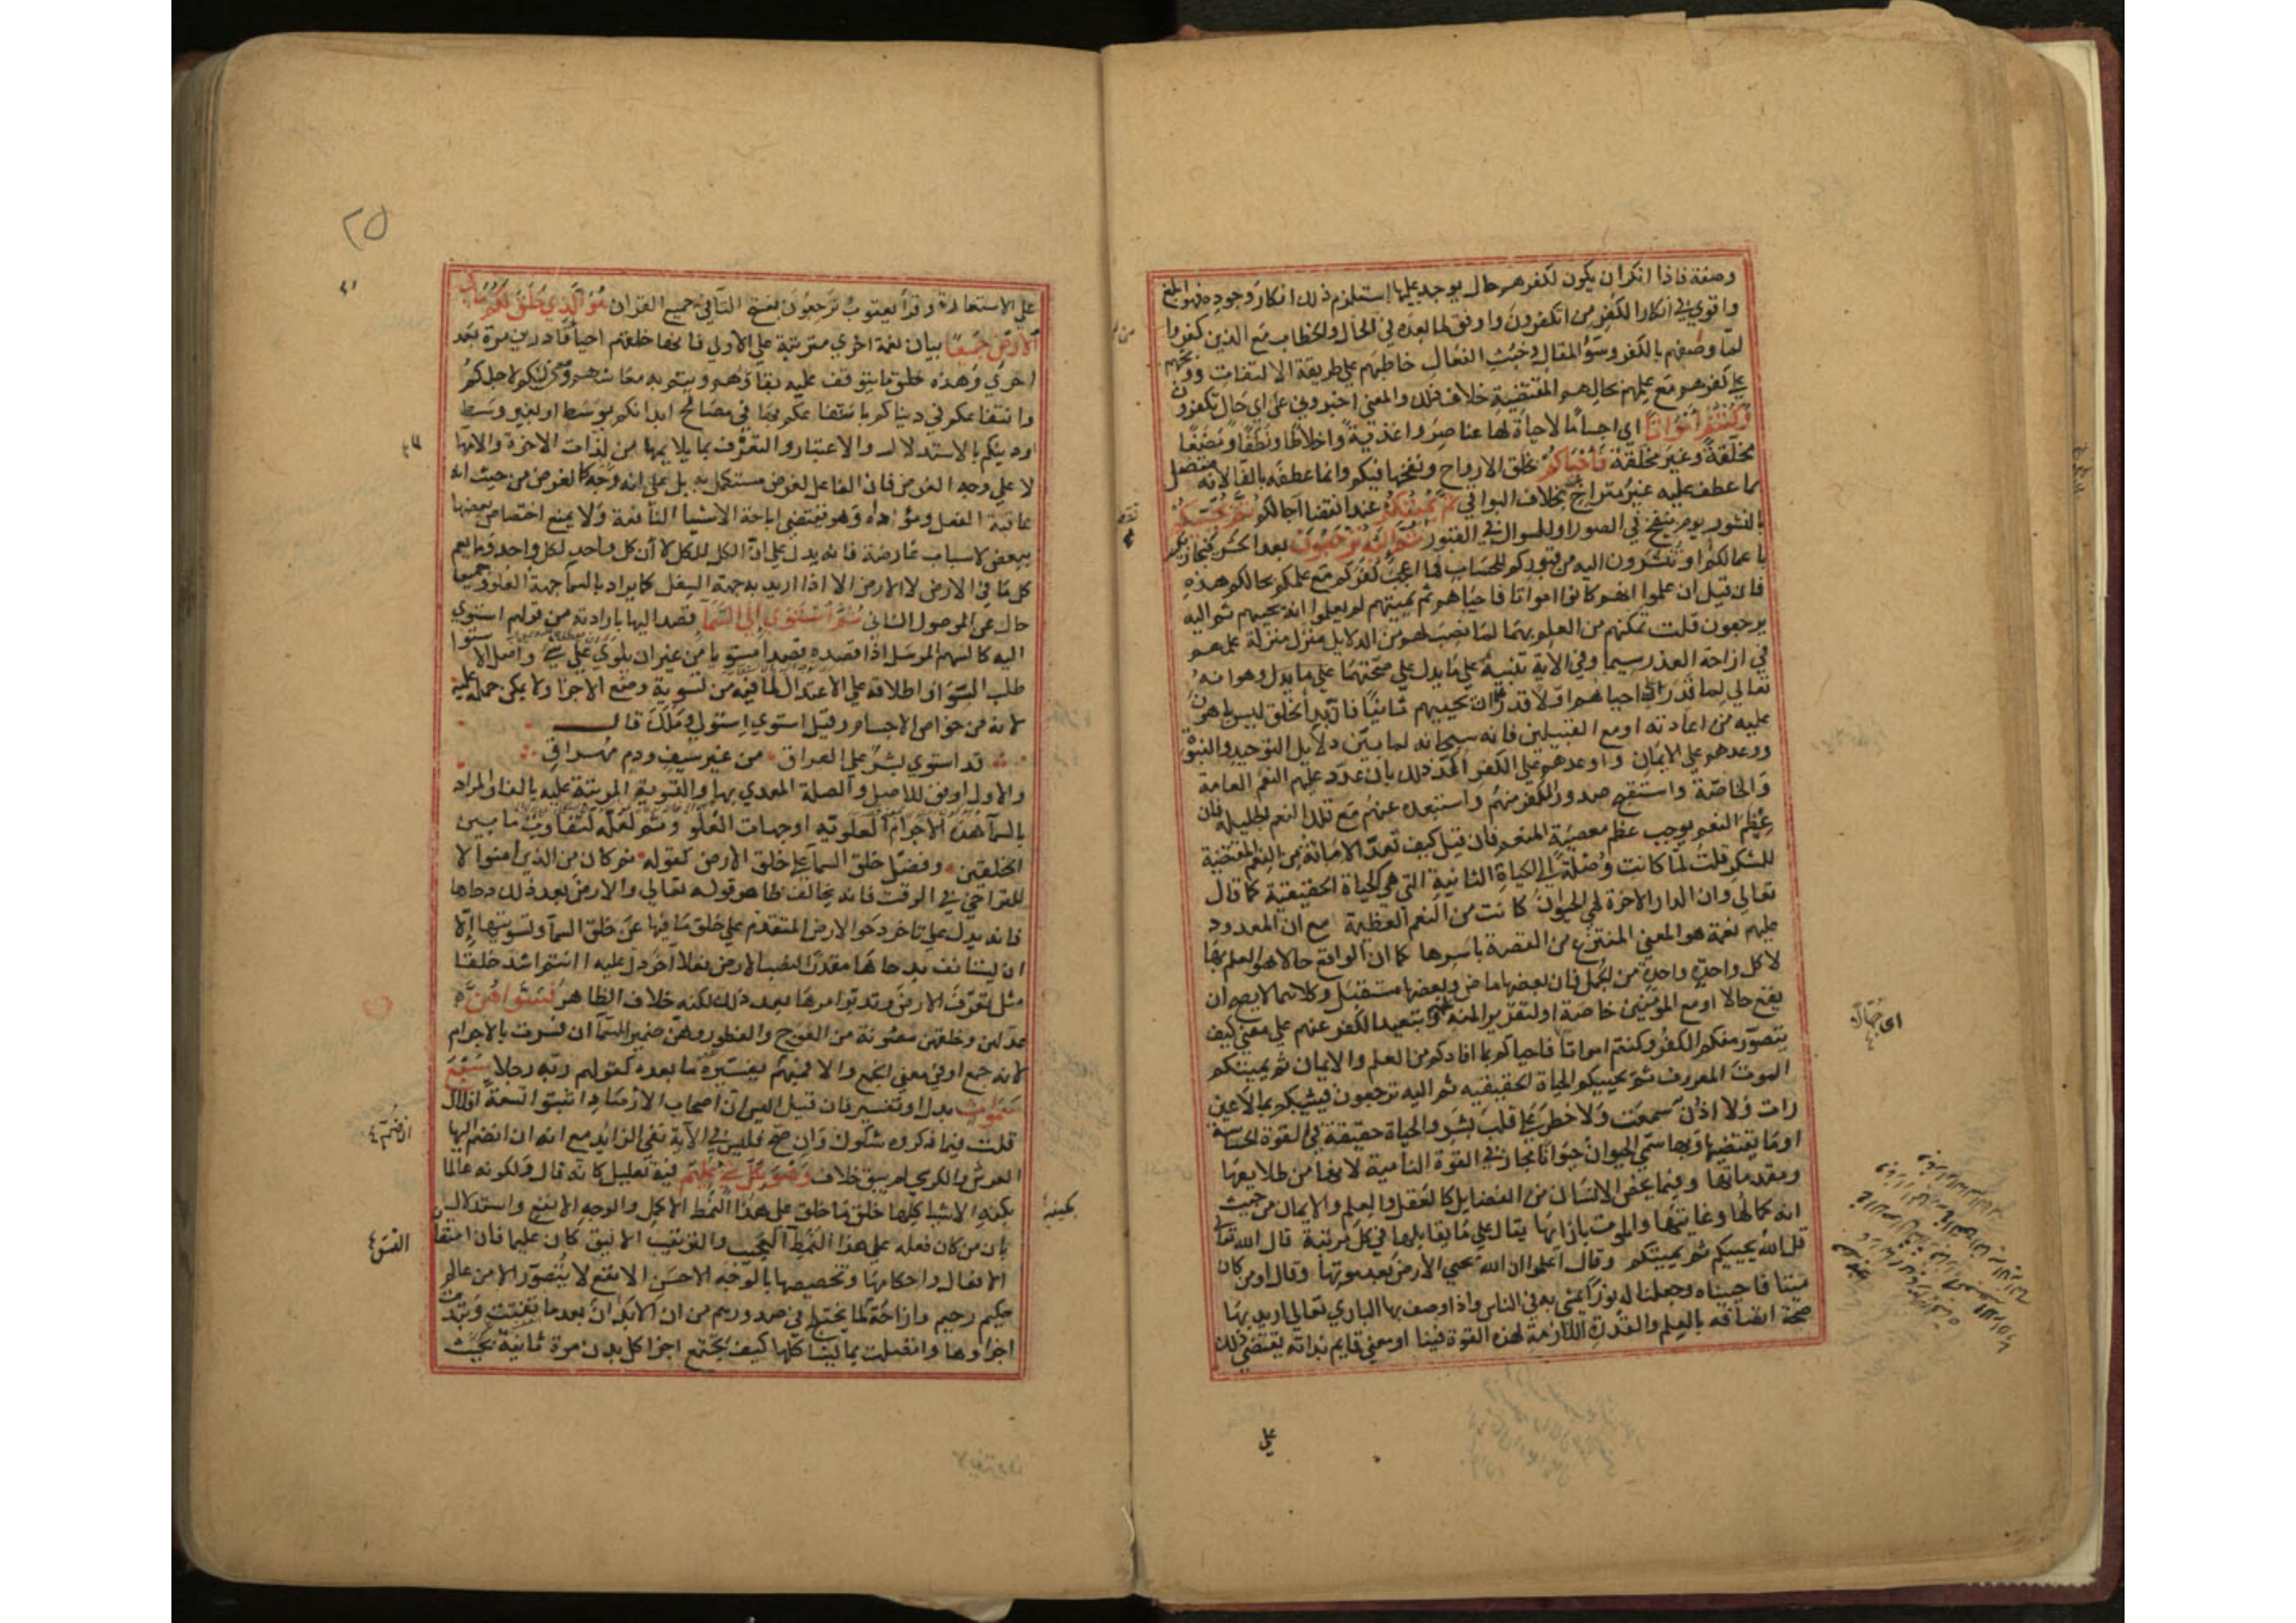 وصفة فاذا انكر ان يكون لكفرهم حال يوجد عليها استلزم ذلك انكار وجوده فهو ابلغ
واقوي في انكار الكفر من اتكفرون واوفق لما بعده في الحال والخطاب مع الذين كفروا
لما وصفهم بالكفر وسوء المقال وخبث الفعال خاطبهم علي طريقة الالتفات ووبخهم
علي كفرهم مع علمهم بحالهم المقتضية خلاف ذلك والمعني اخبروني علي اي حال تكفرون
وكنتم امواتا اي اجساما لا حياة لها عناصر واغذية واخلاطا ونطفا ومضغا
مخلقة وغير مخلقة فاحياكم بخلق الارواح ونفخها فيكم وانما عطفه بالفا لانه متصل
بما عطف عليه غير متراخ بخلاف البواقي ثم يميتكم عند انقضا آجالكم ثم يحييكم
بالنشور يوم ينفخ في الصور او للسوال في القبور ثم اليه ترجعون بعد الحشر فيجازيكم
باعمالكم او تنشرون اليه من قبوركم للحساب فما اعجب كفركم مع علمكم بحالكم هذه
فان قيل ان علموا انهم كانوا امواتا فاحياهم ثم يميتهم لم يعلموا انه يحييهم ثم اليه
يرجعون قلت تمكنهم من العلم بهما لما نصب لهم من الدلايل منزل منزلة علمهم
في ازاحة العذر سيما وفي الاية تنبيه علي ما يدل علي صحتهما علي ما يدل وهو انه
تعالي لما قدر ان احياهم اولا قدر ان يحييهم ثانيا فان بدأ الخلق ليس باهون
عليه من اعادته او مع القبيلين فانه سبحانه لما بين دلايل التوحيد والنبوة
ووعدهم علي الايمان واوعدهم علي الكفر اكد ذلك بان عدد عليهم النعم العامة
والخاصة واستقبح صدور الكفر منهم واستبعده عنهم مع تلك النعم الجليلة فان
عظم النعم يوجب عظم معصية المنعم فان قيل كيف تعد الاماتة من النعم المقتضية
للشكر قلت لما كانت وصلة الي الحياة الثانية التي هي الحياة الحقيقية كما قال
تعالي وان الدار الاخرة لهي الحيوان كانت من النعم العظيمة مع ان المعدود
عليهم نعمة هو المعني المنتزع من القصة باسرها كما ان الواقع حالا هو العلم بها
لا كل واحدة واحدة من الجمل فان بعضها ماض وبعضها مستقبل وكلاهما لا يصح ان
يقع حالا او مع المؤمنين خاصة او لتقرير المنة وتبعيد الكفر عنهم علي معني كيف
يتصور منكم الكفر وكنتم امواتا فاحياكم بما افادكم من العلم والايمان ثم يميتكم
الموت المعروف ثم يحييكم الحياة الحقيقيه ثم اليه ترجعون فيثيبكم بما لا عين
رات ولا اذن سمعت ولا خطر علي قلب بشر والحياة حقيقة في القوة الحساسة
او ما يقتضيها وبها سمي الحيوان حيوانا مجاز في القوة النامية لانها من طلايعها
ومقدماتها وفيما يخص الانسان من الفضايل كالعقل والعلم والايمان من حيث
انه كمالها وغايتها والموت بازايها يقال علي ما يقابلها في كل مرتبة قال الله تعالي
قل الله يحييكم ثم يميتكم وقال اعلموا ان الله يحيي الارض بعد موتها وقال اومن كان
ميتا فاحييناه وجعلنا له نورا يمشي به في الناس واذا وصف بها الباري تعالي اريد بها
صحة اتصافه بالعلم والقدرة اللازمة لهذه القوة فينا او معني قايم بذاته يقتضي ذلك
علي
اي جهال
٢٥
علي الاستعارة وقرأ يعقوب ترجعون بفتح التا في جميع القران هو الذي خلق لكم ما في
الارض جميعا بيان نعمة اخري مترتبة علي الاولي فانها خلقهم احياء قادرين مرة بعد
اخري وهذه خلق ما يتوقف عليه بقاؤهم ويتم به معاشهم ومعني لكم لاجلكم
وانتفاعكم في دنياكم باستنفاعكم بها في مصالح ابدانكم بوسط او بغير وسط
او دينكم بالاستدلال والاعتبار والتعرف بما يلايمها من لذات الاخرة والامها
لا علي وجه الغرض فان الفاعل لغرض مستكمل به بل علي انه وجه كالغرض من حيث انه
عاقبة الفعل ومؤداه وهو يقتضي اباحة الاشيا النافعة ولا يمنع اختصاص بعضها
ببعض لاسباب عارضة فانه يدل علي ان الكل للكل لا ان كل واحد لكل واحد وما يعم
كل ما في الارض لا الارض الا اذا اريد به جهة السفل كما يراد بالسما جهة العلو وجميعا
حال عن الموصول الثاني ثم استوي الي السما قصد اليها بارادته من قولهم استوي
اليه كالسهم المرسل اذا قصده قصدا مستويا من غير ان يلوي علي شي واصل الاستوا
طلب السوا واطلاقه علي الاعتدال لما فيه من تسوية وضع الاجزا ولا يمكن حمله عليه
لانه من خواص الاجسام وقيل استوي استولي وملك قال
قد استوي بشر علي العراق من غير سيف ودم مهراق
والاول اوفق للاصل والصلة المعدي بها والتسوية المرتبة عليه بالفا والمراد
بالسما هذه الاجرام العلوية او جهات العلو وثم لعله لتفاوت ما بين
الخلقين وفضل خلق السما علي خلق الارض كقوله ثم كان من الذين امنوا لا
للتراخي في الوقت فانه يخالف ظاهر قوله تعالي والارض بعد ذلك دحاها
فانه يدل علي تاخر دحو الارض المتقدم علي خلق ما فيها عن خلق السما وتسويتها الا
ان يستانف بدحاها مقدرا لنصب الارض فعلا آخر دل عليه اانتم اشد خلقا
مثل تعرف الارض وتدبر امرها بعد ذلك لكنه خلاف الظاهر فسواهن
عدلهن وخلقهن مصونة من العوج والفطور وهن ضمير السما ان فسرت بالاجرام
لانه جمع او في معني الجمع والا فمبهم يفسره ما بعده كقولهم ربه رجلا سبع
سموات بدل او تفسير فان قيل اليس ان اصحاب الارصاد اثبتوا تسعة افلاك
قلت فيما ذكروه شكوك وان صح فليس في الاية نفي الزايد مع انه ان انضم اليها
العرش والكرسي لم يبق خلاف وهو بكل شي عليم فيه تعليل كانه قال ولكونه عالما
بكنه الاشيا كلها خلق ما خلق علي هذا النمط الاكمل والوجه الانفع واستدلال
بان من كان فعله علي هذا النمط العجيب والترتيب الانيق كان عليما فان اتقان
الافعال واحكامها وتخصيصها بالوجه الاحسن الانفع لا يتصور الا من عالم
حكيم رحيم وازاحة لما يختلج في صدورهم من ان الابدان بعد ما تفتت وتبددت
اجزاوها واتصلت بما يشاكلها كيف يجتمع اجزا كل بدن مرة ثانية بحيث